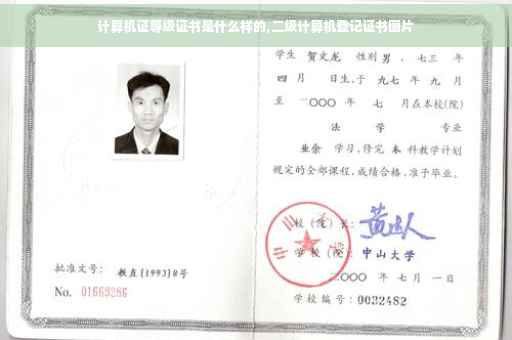 计算机证等级证书是什么样的,二级计算机登记证书图片
学生 贺文龙 性别 男 、七三 年
四 月 日生,于 九七 年 九 月
至 二〇〇〇 年 七 月在本校(院)
法 学 专业
业余 学习,修完 本 科教学计划
规定的全部课程,成绩合格,准予毕业。
校 (院) 长:
学 校 (院): 中山大学
二〇〇〇 年 七 月 一 日
学校编号: 0032482
批准文号: 教直[1993]8号
No. 01669286